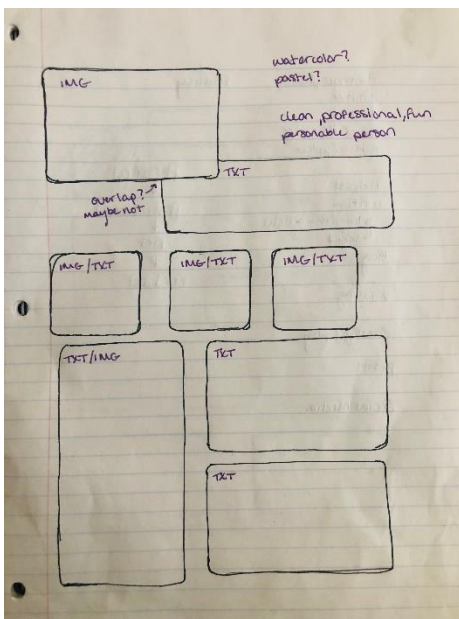 watercolor?
pastel?
IMG
clean, professional, fun
personable person
TXT
overlap?
maybe not
IMG/TXT
IMG/TXT
IMG/TXT
TXT/IMG
TXT
TXT